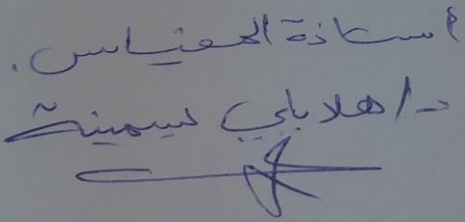 أستاذة المقياس.
د/هلايلي يسمينة